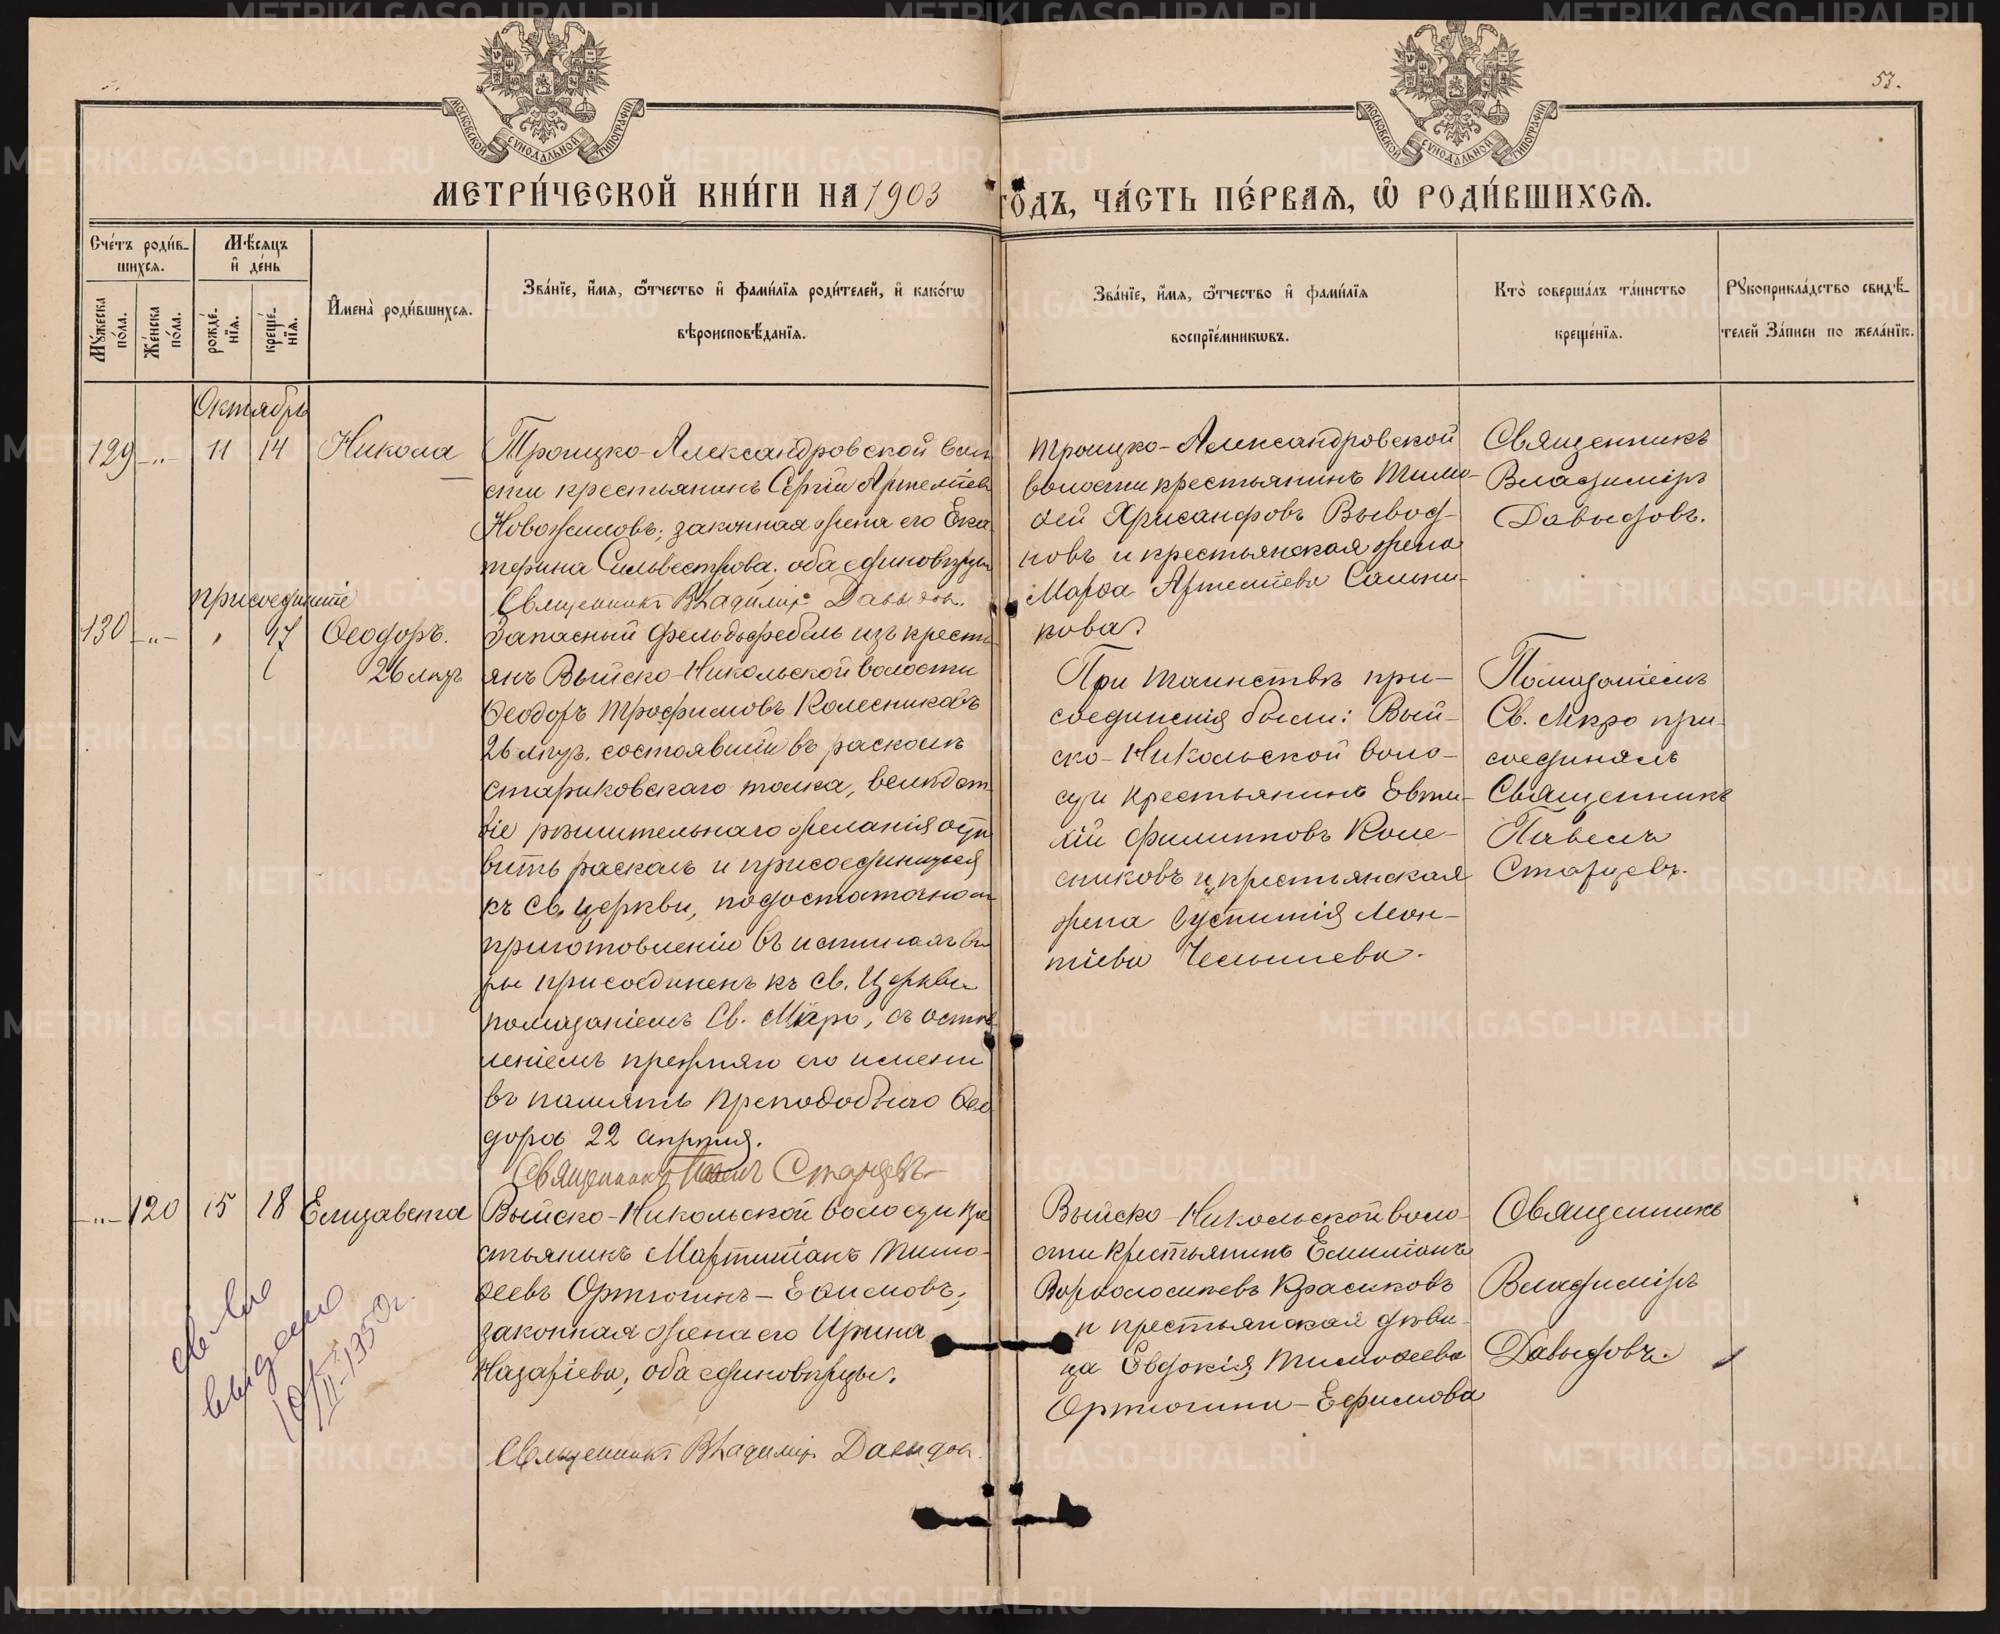 57.
МЕТРИ́ЧЕСКОЙ КНИ́ГИ НА 1903
ГО́ДЪ, ЧА́СТЬ ПЕ́РВАѦ, Ѡ РОДИ́ВШИХСѦ.
МОСКОВСКОЙ СѴНОДАЛЬНОЙ ТИПОГРАФІИ
МОСКОВСКОЙ СѴНОДАЛЬНОЙ ТИПОГРАФІИ
Сче́тъ роди́в-
шихсѧ.
Мѣ́сѧцъ
и҆ де́нь
Мꙋ́жеска по́ла.
Же́нска по́ла.
рожде́-
нїѧ.
креще́-
нїѧ.
И҆мена̀ роди́вшихсѧ.
Зва́нїе, и҆́мѧ, ѻ҆́тчество и҆ фами́лїѧ роди́телей, и҆ како́гѡ
вѣроисповѣ́данїѧ.
Зва́нїе, и҆́мѧ, ѻ҆́тчество и҆ фами́лїѧ
воспрїе́мникѡвъ.
Кто̀ соверша́лъ та́инство
креще́нїѧ.
Рꙋкоприкла́дство свидѣ́-
телей за́писи по жела́нїю.
Октябрь
129 -„- 11 14 Никола
Троицко-Александровской воло
сти крестьянинъ Сергiй Артемiев
Новожиловъ; законная жена его Ека
терина Сильвестрова, оба единоверцы
Священникъ Владимiръ Давыдов.
Троицко-Александровской
волости крестьянинъ Тимо-
ѳей Хрисанфовъ Вывод-
новъ и крестьянская жена
Марѳа Артемiева Сальни-
кова.
Священникъ
Владимiръ
Давыдовъ.
присоединенiе
130 -„- „ 17 Ѳеодоръ.
26 лѣтъ
Запасный фельдфебель изъ кресть
янъ Выйско-Никольской волости
Ѳеодоръ Трофимовъ Колесниковъ
26 лѣтъ, состоявшiй въ расколѣ
стариковскаго толка, вслѣдст
вiе рѣшительнаго желанiя оста
вить расколъ и присоединиться
къ Св. церкви, по достаточном
приготовленiи въ истинахъ вѣ
ры присоединенъ къ Св. Церкви
помазанiемъ Св. Мѵро, съ остав
ленiемъ прежняго его имени
въ память преподобнаго Ѳео
дора 22 апрѣля.
Священникъ Павелъ Старцевъ
При таинствѣ при-
соединенiя были: Вый-
ско-Никольской воло-
сти крестьянинъ Евти-
хiй Филипповъ Коле-
сниковъ и крестьянская
жена Іустинiя Леон-
тiева Челышева.
Помазанiемъ
Св. Мѵро при-
соединялъ
Священникъ
Павелъ
Старцевъ.
-„- 120 15 18 Елизавета
Выйско-Никольской волости кре
стьянинъ Мартинiанъ Тимо-
ѳеевъ Ортюгинъ-Ефимовъ;
законная жена его Ирина
Назарiева, оба единоверцы.
Священникъ Владимiръ Давыдов.
Выйско-Никольской воло-
сти крестьянинъ Емилiанъ
Варѳоломеевъ Красиковъ
и крестьянская дѣви-
ца Евдокiя Тимоѳеева
Ортюгина-Ефимова
Священникъ
Владимiръ
Давыдовъ.
св-во
выдано
10/II-1350г.